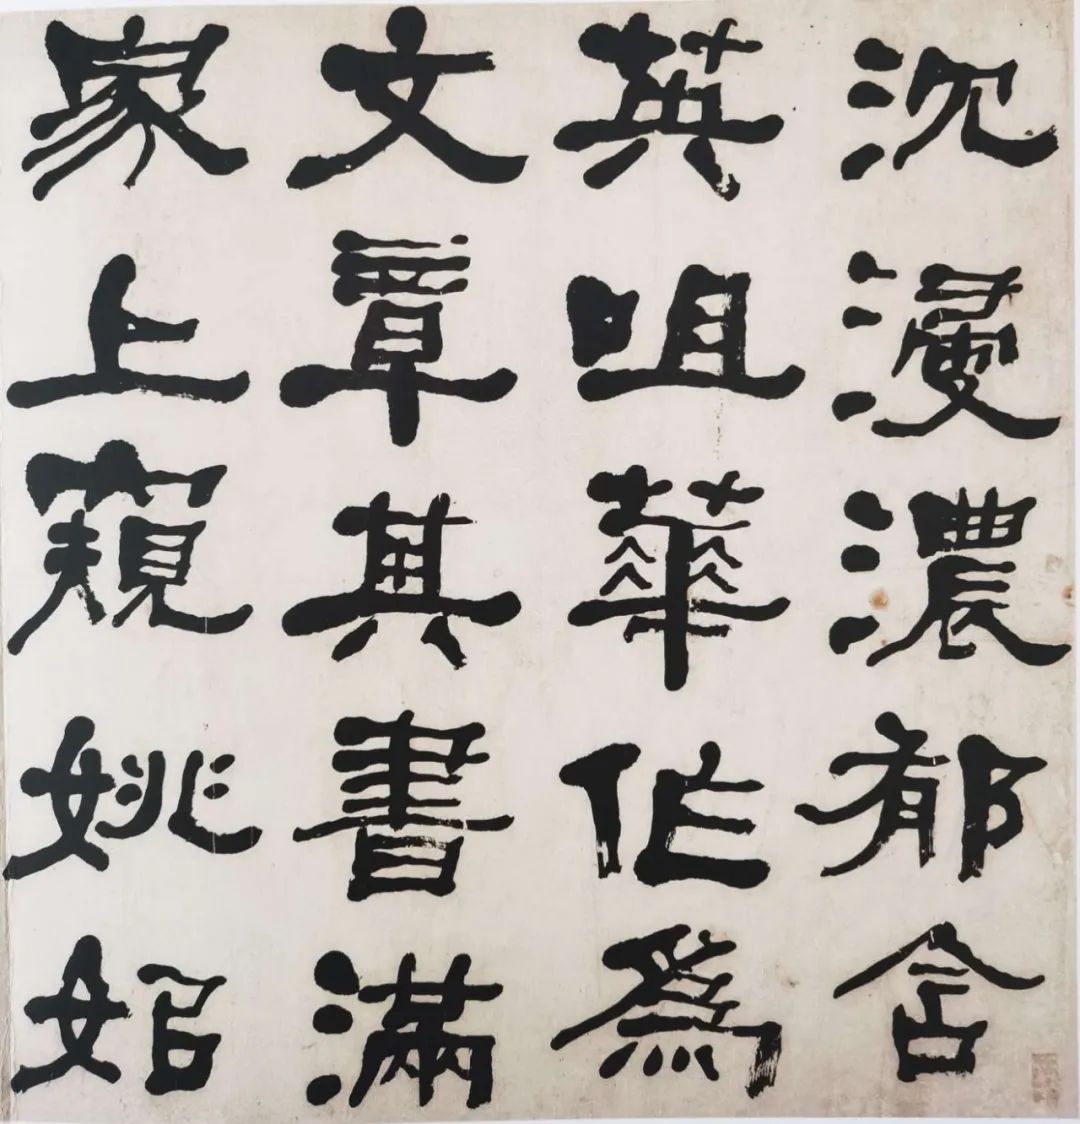 沈浸濃郁含
英咀華作爲
文章其書滿
家上窺姚姒